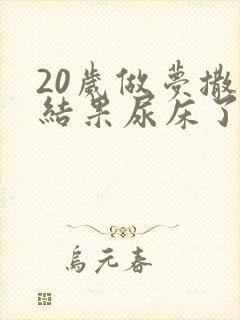 20歲做夢撒
結果尿床了
烏元春